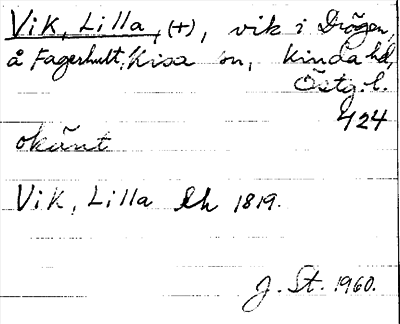 Vik, Lilla, (+), vik i Drögen,
å Fagerhult, Kisa sn, Kinda hd,
Östg. l.
424
okänt
Vik, Lilla Lk 1819.
J. St. 1960.